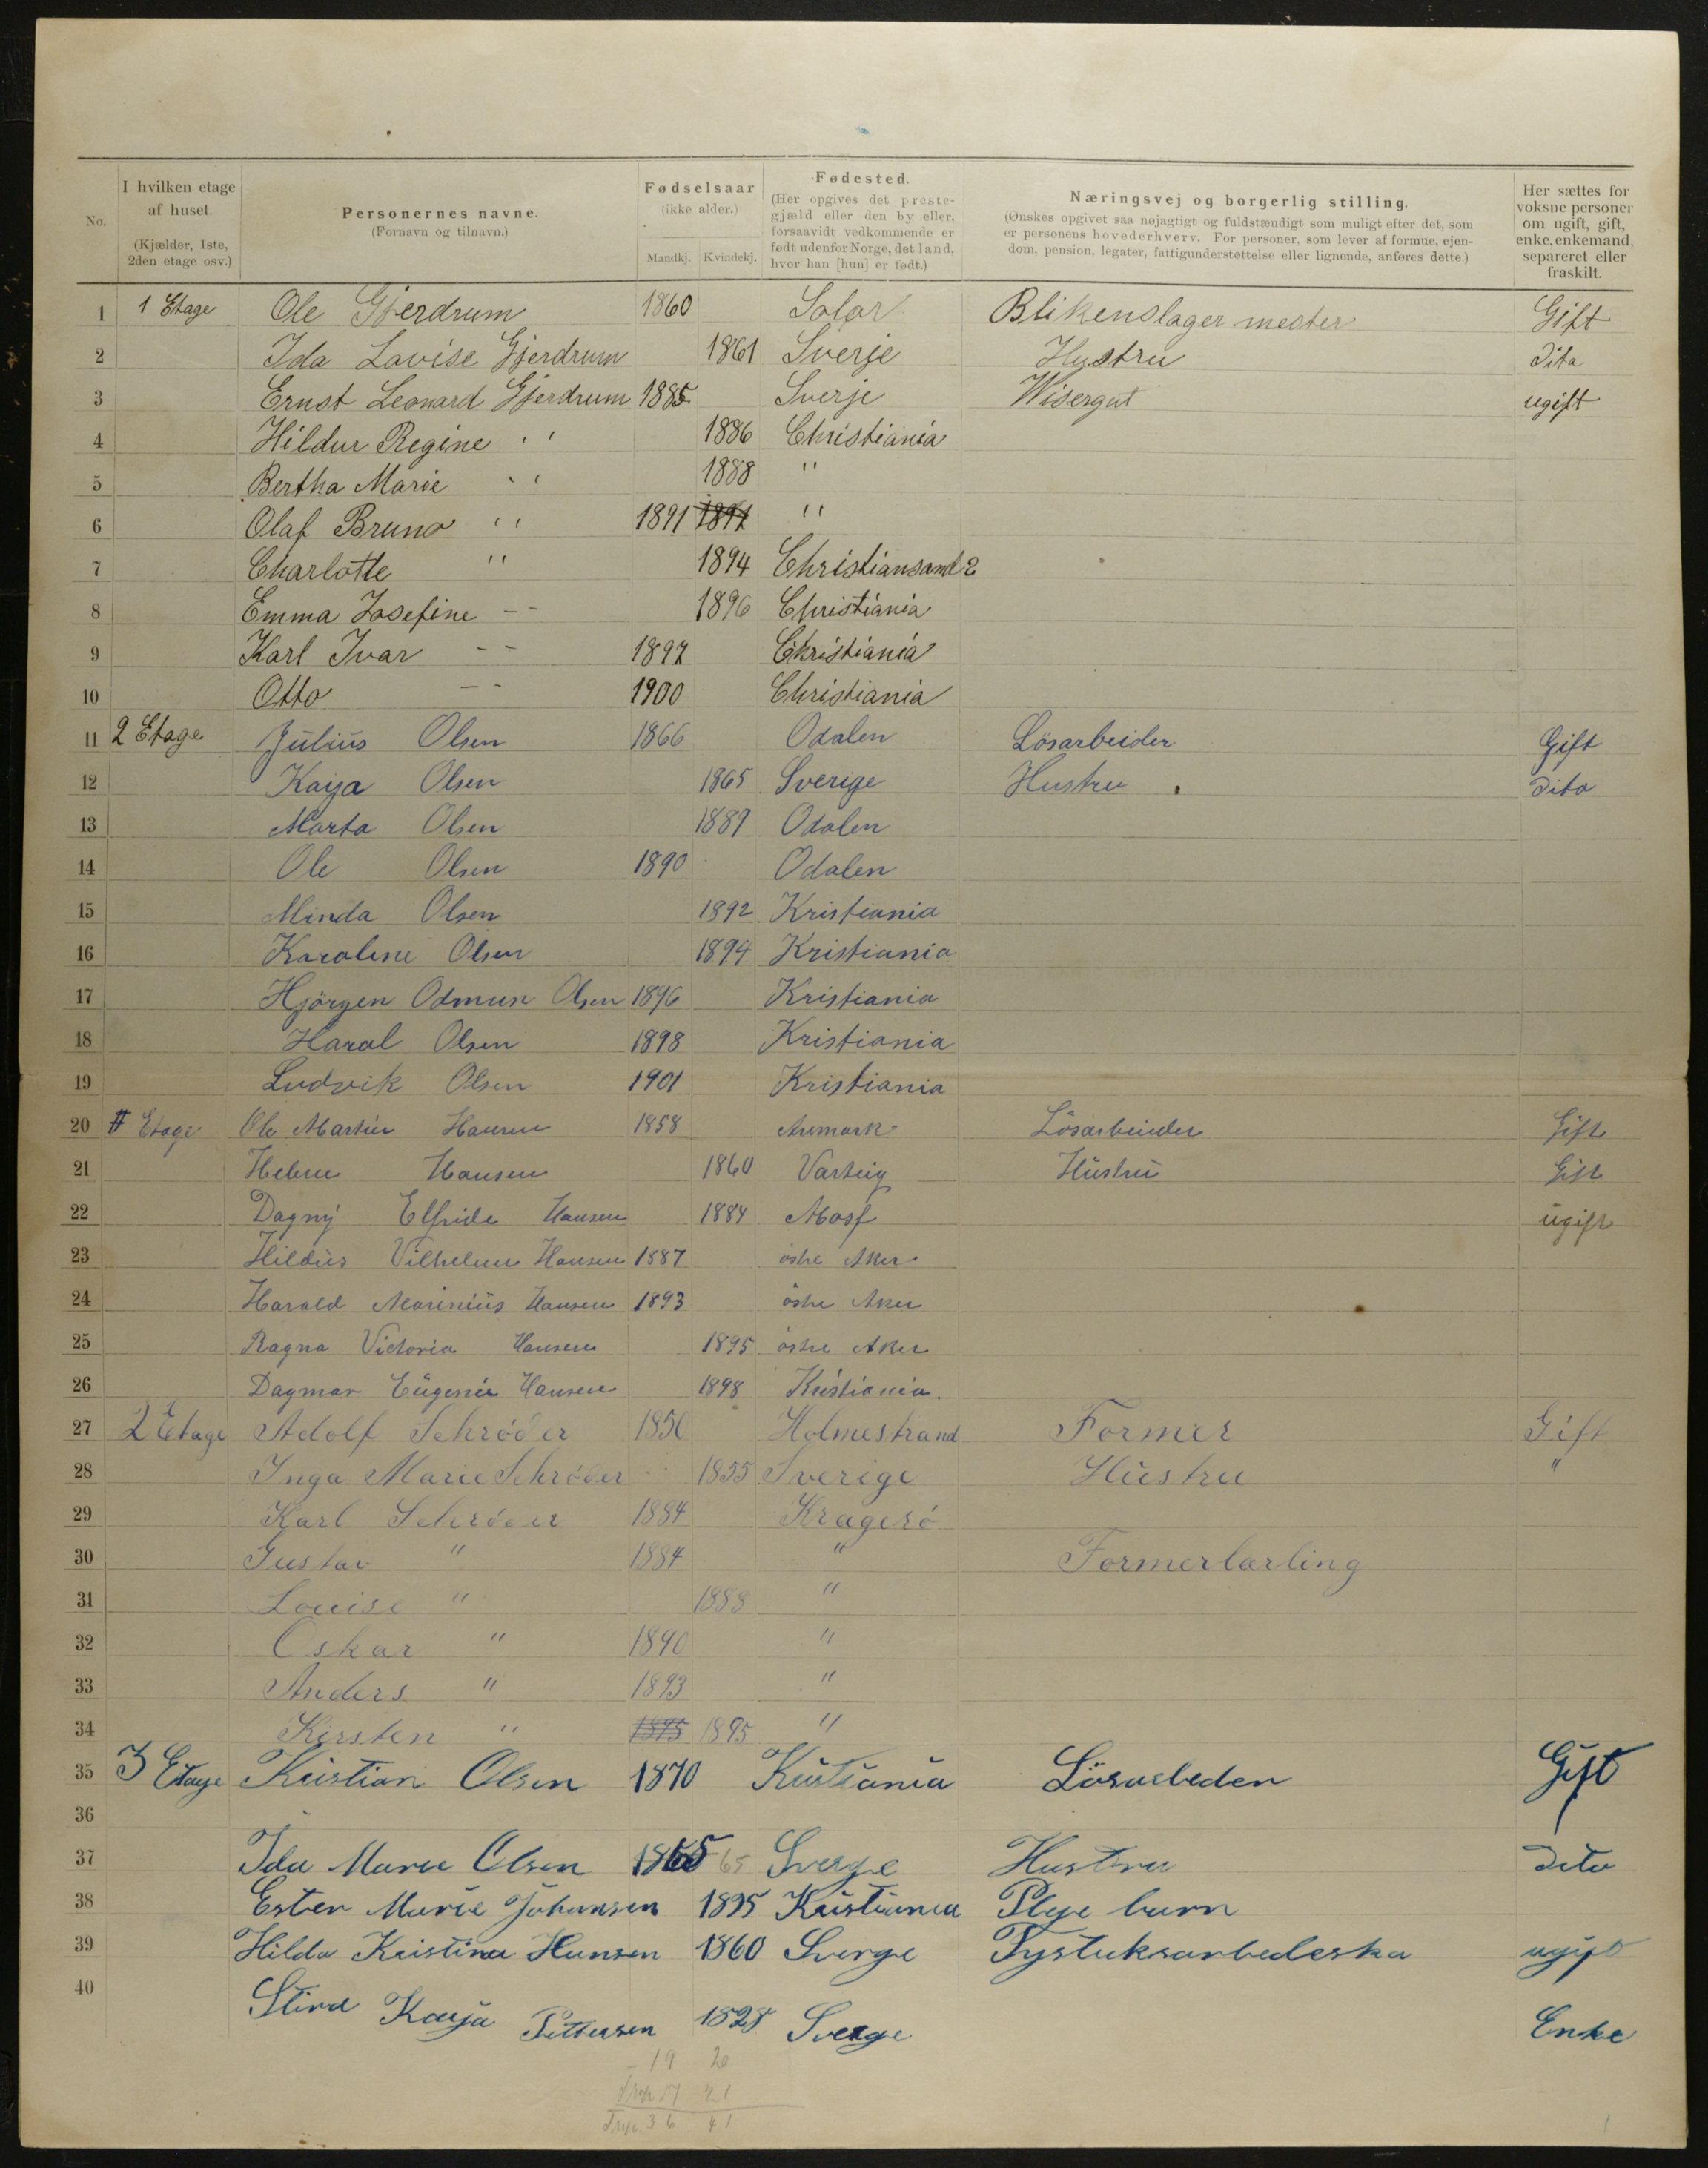 No.
I hvilken etage af huset. (Kjælder, 1ste, 2den etage osv.)
Personernes navne. (Fornavn og tilnavn.)
Fødselsaar (ikke alder.) Mandkj. Kvindekj.
Fødested. (Her opgives det prestegjæld eller den by eller, forsaavidt vedkommende er født udenfor Norge, det land, hvor han [hun] er født.)
Næringsvej og borgerlig stilling. (Ønskes opgivet saa nøjagtigt og fuldstændigt som muligt efter det, som er personens hovederhverv. For personer, som lever af formue, ejendom, pension, legater, fattigunderstøttelse eller lignende, anføres dette.)
Her sættes for voksne personer om ugift, gift, enke, enkemand, separeret eller fraskilt.
1 1 Etage Ole Gjerdrum 1860 Solør Blikenslager mester Gift
2 Ida Lovise Gjerdrum 1861 Sverje Hustru Dito
3 Ernst Leonard Gjerdrum 1885 Sverje Wisergut ugift
4 Hildur Regine " 1886 Christiania
5 Bertha Marie " 1888 "
6 Olaf Bruno " 1891 1891 "
7 Charlotte " 1894 Christiansand
8 Emma Josefine -- 1896 Christiania
9 Karl Ivar -- 1897 Christiania
10 Otto -- 1900 Christiania
11 2 Etage Julius Olsen 1866 Odalen Lösarbeider Gift
12 Kaya Olsen 1865 Sverige Hustru Dito
13 Marta Olsen 1889 Odalen
14 Ole Olsen 1890 Odalen
15 Minda Olsen 1892 Kristiania
16 Karoline Olsen 1894 Kristiania
17 Hjörgen Odmun Olsen 1896 Kristiania
18 Haral Olsen 1898 Kristiania
19 Ludvik Olsen 1901 Kristiania
20 Etage Ole Martin Hansen 1858 Aremark Lösarbeider Gift
21 Helene Hansen 1860 Varteig Hustru Gift
22 Dagny Elfride Hansen 1884 Mosf ugift
23 Hildur Vilhelm Hansen 1887 östre Aker
24 Harald Marinius Hansen 1893 östre Aker
25 Ragna Victoria Hansen 1895 östre Aker
26 Dagmar Eugenie Hansen 1898 Kristiania.
27 2 Etage Adolf Schrøder 1856 Holmestrand Former Gift
28 Inga Marie Schrøder 1855 Sverige Hustru "
29 Karl Schrøder 1884 Kragerö
30 Gustav " 1884 " Formerlærling
31 Louise " 1888 "
32 Oskar " 1890 "
33 Anders " 1893 "
34 Kirsten " 1895 1895 "
35 3 Etage Kristian Olsen 1870 Kristiania Lösarbeden Gift
36
37 Ida Marie Olsen 65 Sverge Hustru Dito
38 Ester Marie Johansen 1895 Kristiania Pleje barn
39 Hilda Kristina Hansen 1860 Sverge Tystuksarbedeska ugift
40 Kaija Pettersen 1828 Sverge Enke
19 20
17 21
36 41